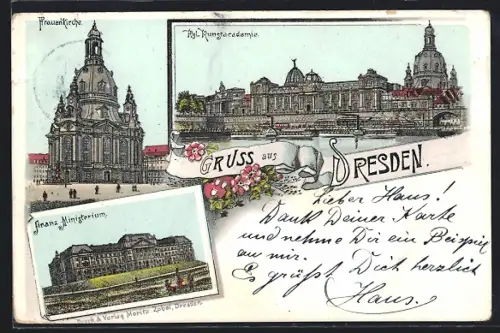 Frauenkirche.
Kgl. Kunstacademie.
GRUSS aus DRESDEN.
Lieber Hans!
Dank Deiner Karte
und nehme Dir ein Beispiel
an mir.
Es grüßt Dich herzlich
Hans.
Finanz Ministerium.
Druck & Verlag Moritz Zobel, Dresden.